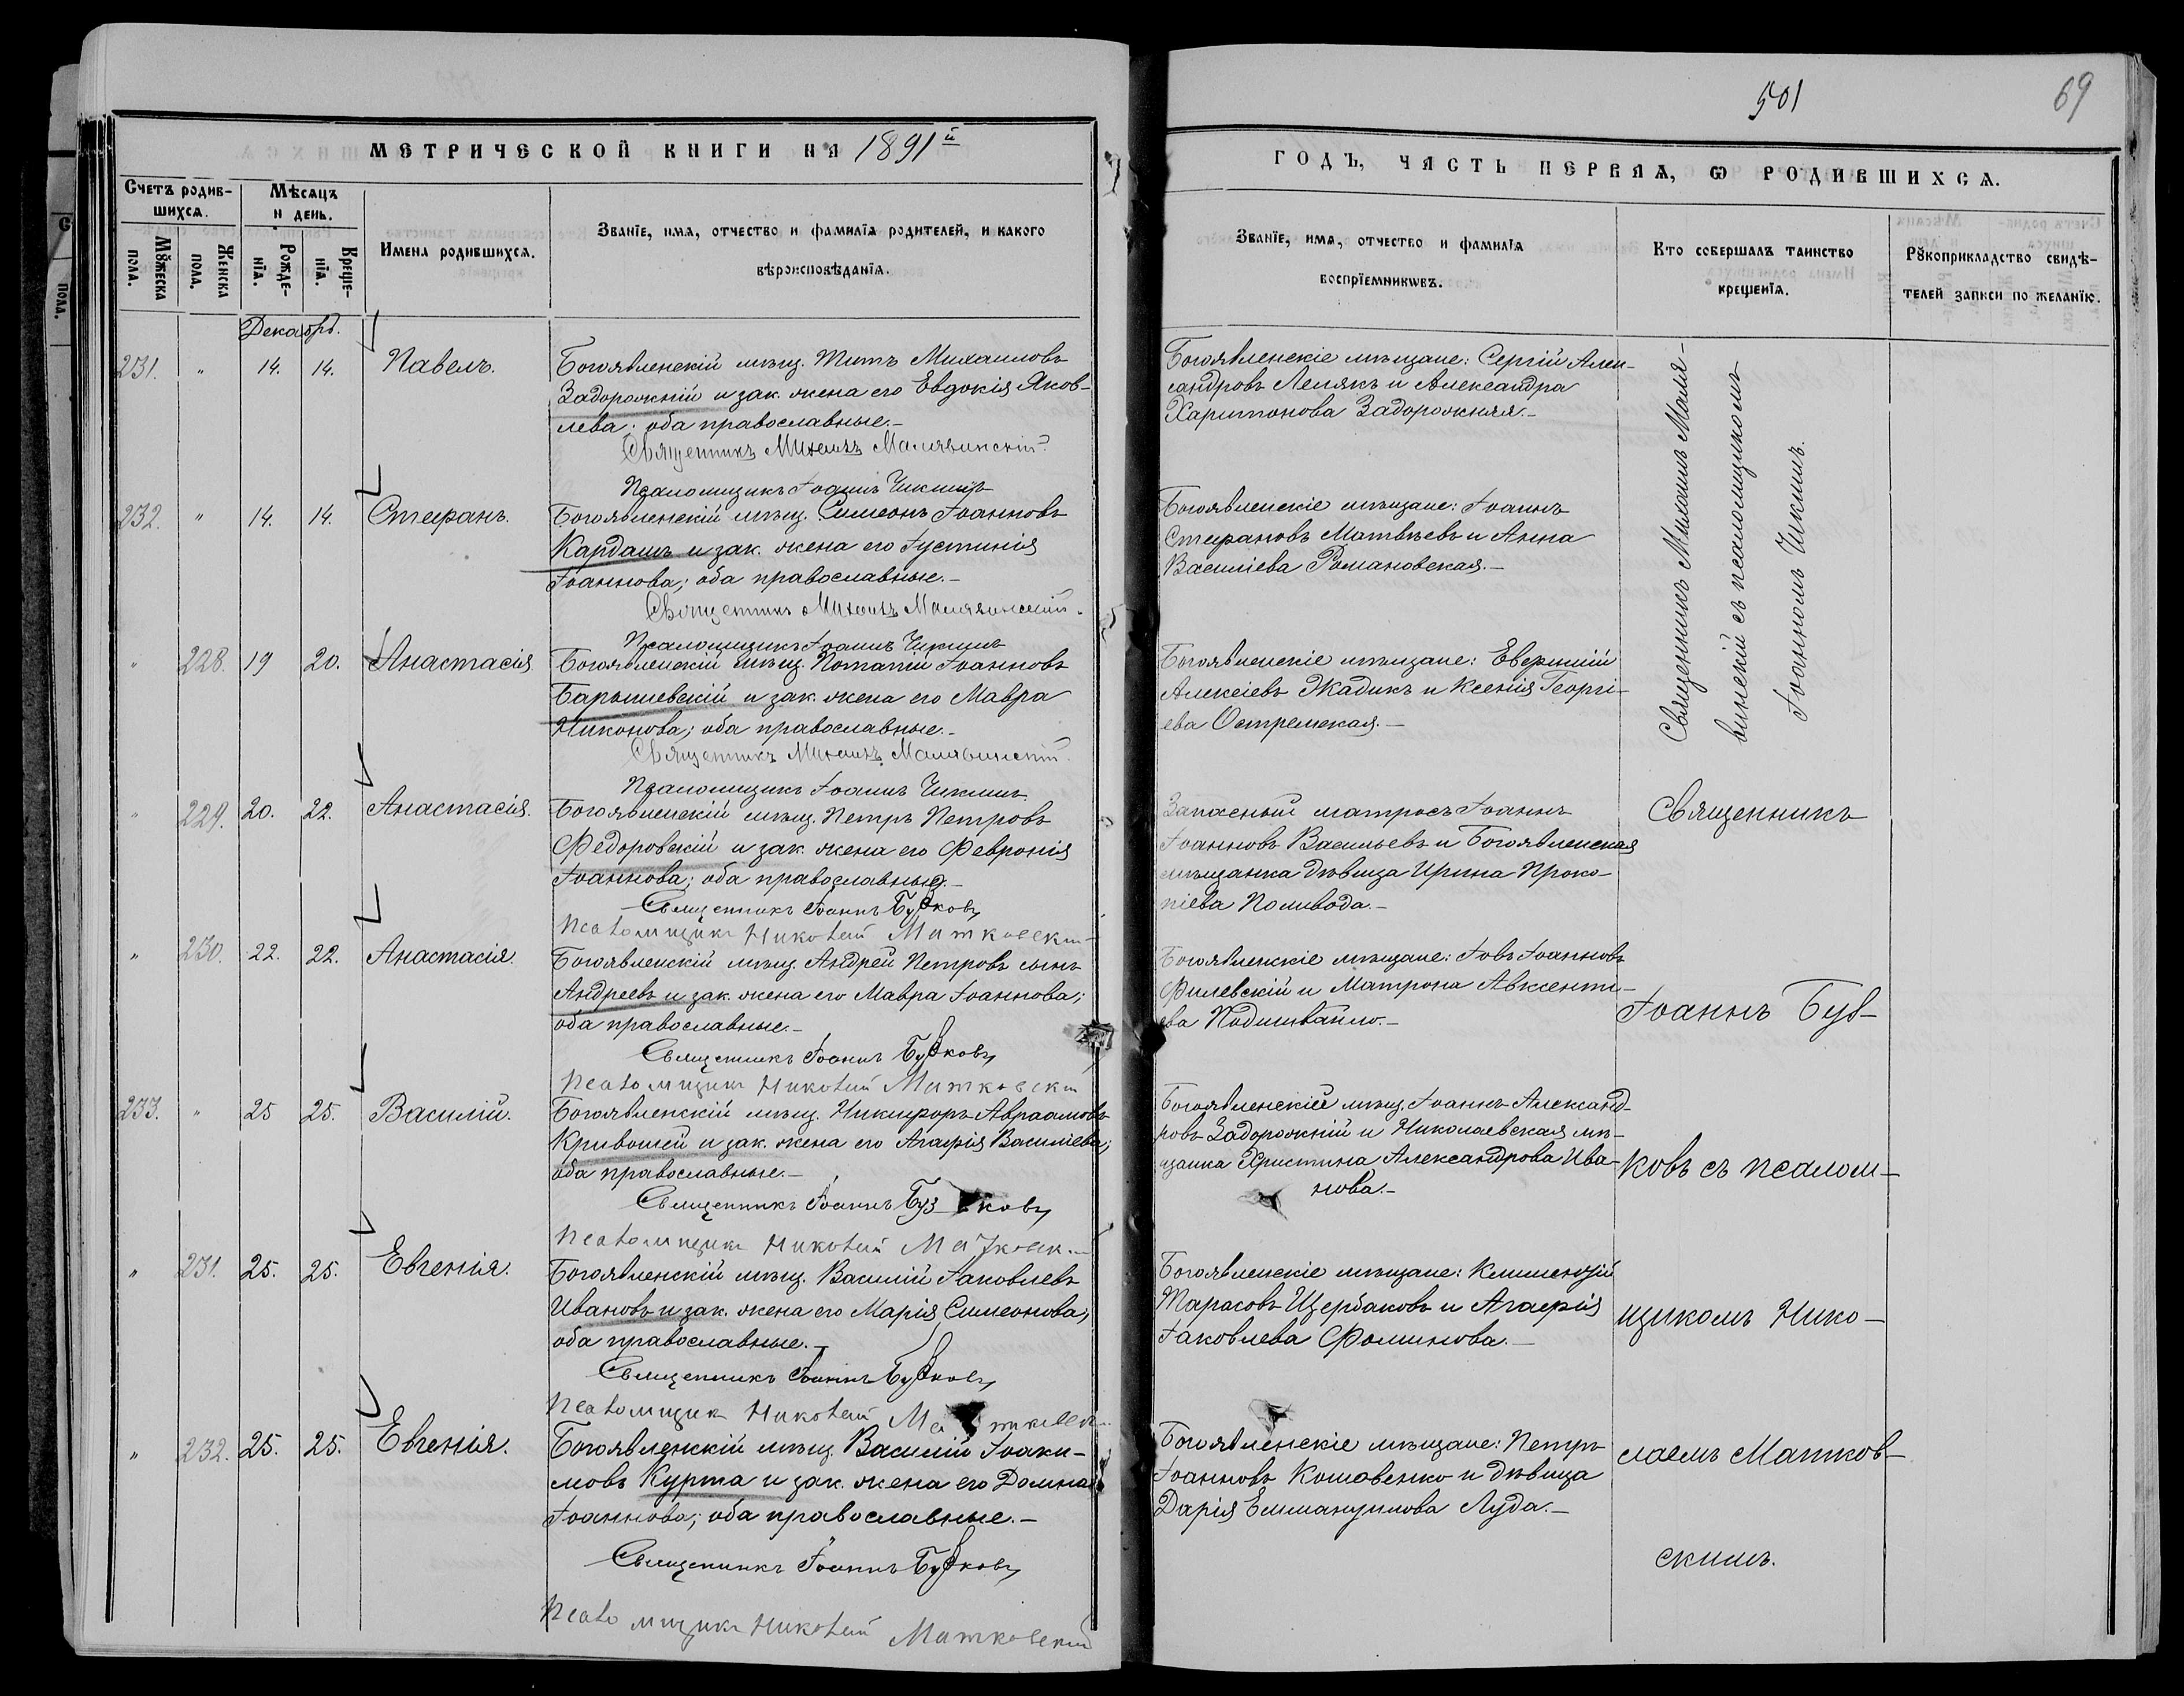 501
69
МЕТРИЧЕСКОЙ КНИГИ НА 1891й
ГОДЪ, ЧАСТЬ ПЕРВАЯ, Ѡ РОДИВШИХСѦ.
Счетъ родив-
шихсѧ.
Мѣсѧцъ
и день.
Мꙋжеска
пола.
Женска
пола.
Рожде-
нїѧ.
Креще-
нїѧ.
Имена родившихсѧ.
Званїе, имѧ, отчество и фамилїѧ родителей, и какого
вѣроисповѣданїѧ.
Званїе, имѧ, отчество и фамилїѧ
воспрїемникѡвъ.
Кто совершалъ таинство
крещенїѧ.
Рꙋкоприкладство свидѣ-
телей записи по желанїю.
Декабрь.
231. " 14. 14. Павелъ.
Богоявленскій мѣщ. Титъ Михаиловъ
Задорожній и зак. жена его Евдокія Яков-
лева; оба православные.-
Священникъ Михаилъ Малявинскій.
Псаломщикъ Іоаннъ Чикишъ
Богоявленскіе мѣщане: Сергій Алек-
сандровъ Лемякъ и Александра
Харитонова Задорожняя.-
Священникъ Михаилъ Маля-
винскій съ псаломщикомъ
Іоанномъ Чикишъ.
232. " 14. 14. Стефанъ.
Богоявленскій мѣщ. Симеонъ Іоанновъ
Кардашъ и зак. жена его Іустинія
Іоаннова; оба православные.-
Священникъ Михаилъ Малявинскій.
Псаломщикъ Іоаннъ Чикишъ
Богоявленскіе мѣщане: Іоаннъ
Стефановъ Матвѣевъ и Анна
Василіева Романовская.-
" 228. 19 20. Анастасія
Богоявленскій мѣщ. Потапій Іоанновъ
Барышевскій и зак. жена его Мавра
Никонова; оба православные.-
Священникъ Михаилъ Малявинскій.
Псаломщикъ Іоаннъ Чикишъ
Богоявленскіе мѣщане: Евфимій
Алексіевъ Жадикъ и Ксенія Георгі-
ева Остремская.-
" 229. 20. 22. Анастасія.
Богоявленскій мѣщ. Петръ Петровъ
Федоровскій и зак. жена его Февронія
Іоаннова; оба православные.-
Священникъ Іоаннъ Бузковъ
Псаломщикъ Николай Матковскій
Запасный матросъ Іоаннъ
Іоанновъ Васильевъ и Богоявленская
мѣщанка дѣвица Ирина Проко-
піева Поливода.-
Священникъ
" 230. 22. 22. Анастасія.
Богоявленскій мѣщ. Андрей Петровъ сынъ
Андреевъ и зак. жена его Мавра Іоаннова;
оба православные.-
Священникъ Іоаннъ Бузковъ
Псаломщикъ Николай Матковскій
Богоявленскіе мѣщане: Іовъ Іоанновъ
Филевскій и Матрона Авксенті-
ева Подшивайло.-
Іоаннъ Буз-
233. " 25 25. Василій.
Богоявленскій мѣщ. Никифоръ Авраамовъ
Кривошей и зак. жена его Агафія Василіева;
оба православные.-
Священникъ Іоаннъ Бузковъ
Псаломщикъ Николай Матковск
Богоявленскій мѣщ. Іоаннъ Александ-
ровъ Задорожній и Николаевская мѣ-
щанка Христина Александрова Ива-
нова.-
ковъ съ псалом-
" 231. 25. 25. Евгенія.
Богоявленскій мѣщ. Василій Іаковлевъ
Ивановъ и зак. жена его Марія Симеонова,
оба православные.-
Священникъ Іоаннъ Бузковъ
Псаломщикъ Николай Матковск
Богоявленскіе мѣщане: Климентій
Тарасовъ Щербаковъ и Агафія
Іаковлева Фоминова.-
щикомъ Нико-
" 232. 25. 25. Евгенія.
Богоявленскій мѣщ. Василій Іоаки-
мовъ Курта и зак. жена его Домна
Іоаннова; оба православные.-
Священникъ Іоаннъ Бузковъ
Псаломщикъ Николай Матковскій
Богоявленскіе мѣщане: Петръ
Іоанновъ Кошовенко и дѣвица
Дарія Еммануилова Луда.-
лаемъ Матков-
скимъ.